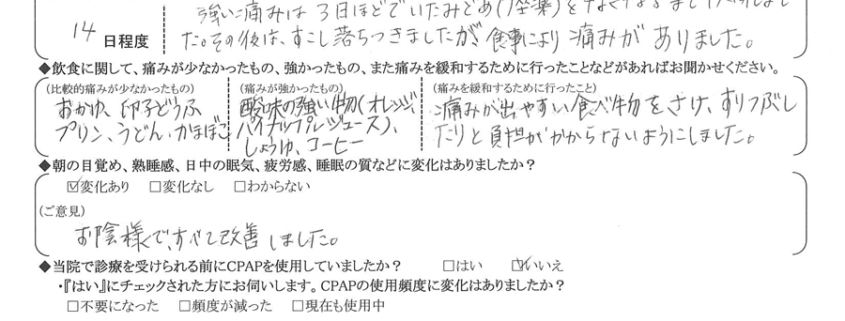 強い痛みは3日ほどでいたみどめ(座薬)を
14日程度
た。その後は、すこし落ちつきましたが食事により痛みがありました。
◆飲食に関して、痛みが少なかったもの、強かったもの、また痛みを緩和するために行ったことなどがあればお聞かせください。
(比較的痛みが少なかったもの)
おかゆ、卵子どうふ
プリン、うどん、かまぼこ
(痛みが強かったもの)
酸味の強い物(オレンジ、
パイナップルジュース)、
しょうゆ、コーヒー
(痛みを緩和するために行ったこと)
痛みが出やすい食べ物をさけ、すりつぶし
たりと負担がかからないようにしました。
◆朝の目覚め、熟睡感、日中の眠気、疲労感、睡眠の質などに変化はありましたか?
☑変化あり □変化なし □わからない
(ご意見)
お陰様で、すべて改善しました。
◆当院で診療を受けられる前にCPAPを使用していましたか? □はい ☑いいえ
・『はい』にチェックされた方にお伺いします。CPAPの使用頻度に変化はありましたか?
□不要になった □頻度が減った □現在も使用中